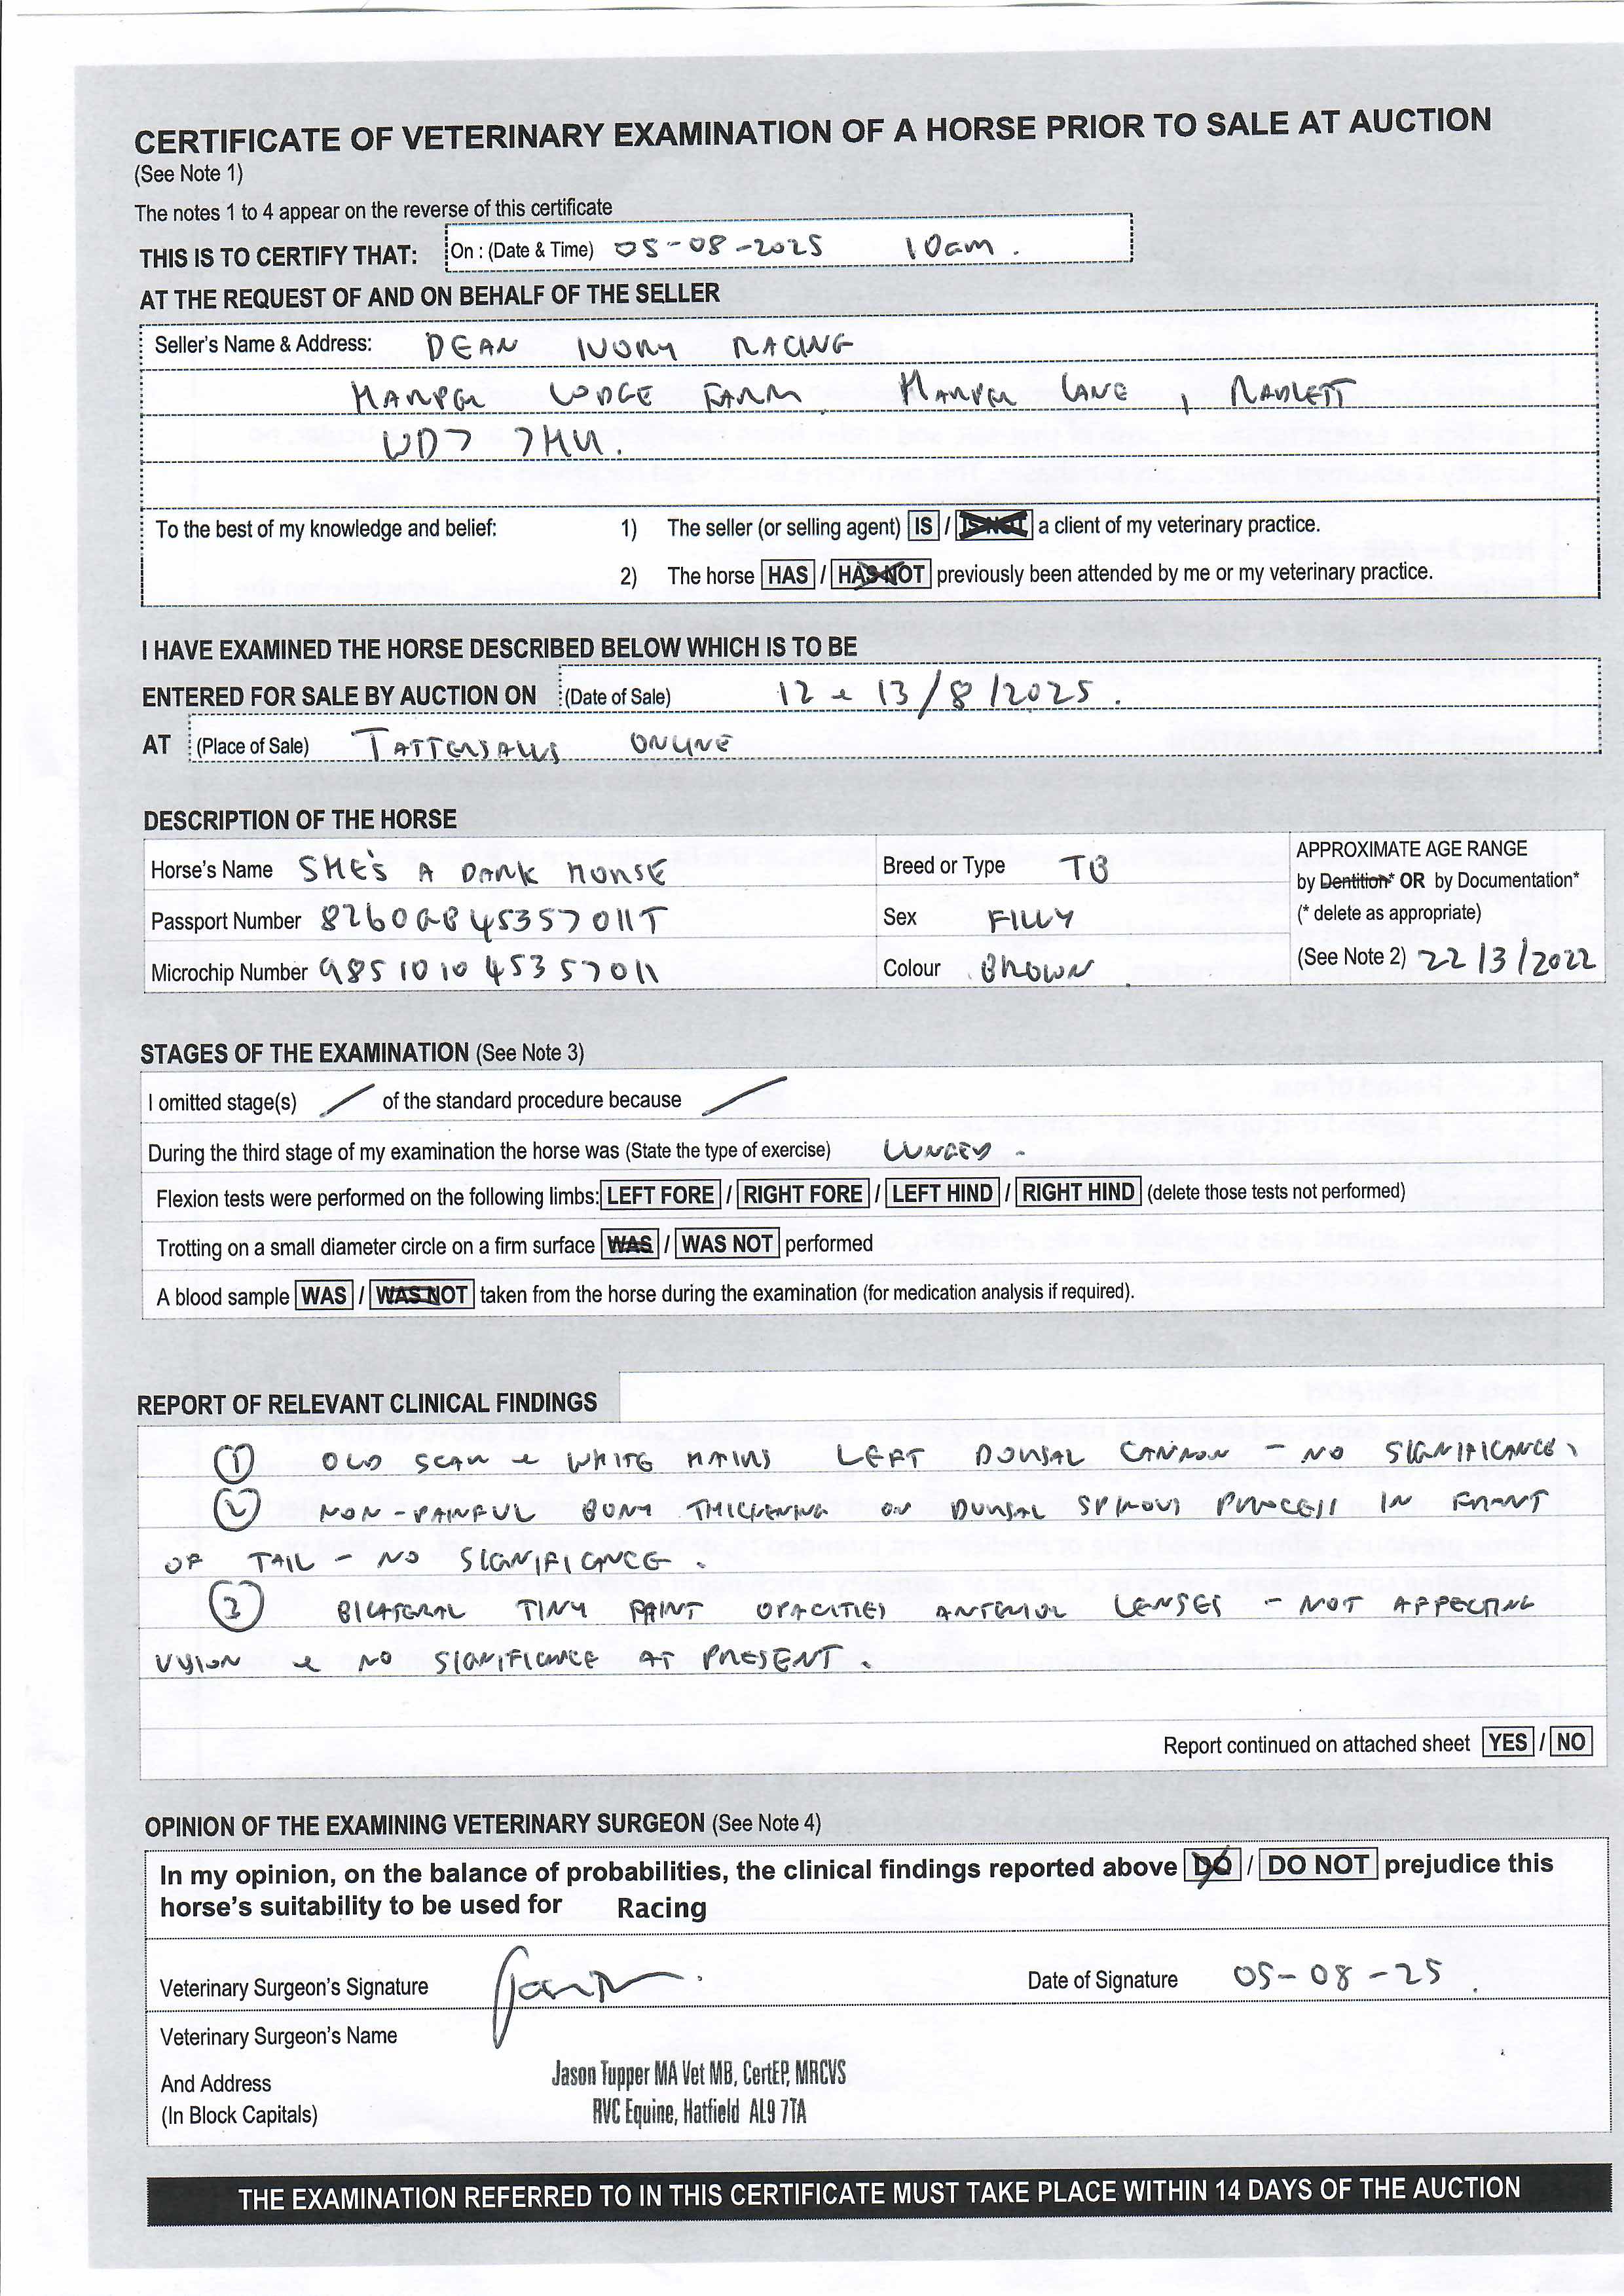 CERTIFICATE OF VETERINARY EXAMINATION OF A HORSE PRIOR TO SALE AT AUCTION
(See Note 1)
The notes 1 to 4 appear on the reverse of this certificate
THIS IS TO CERTIFY THAT: On : (Date & Time) 05-08-2025 10am.
AT THE REQUEST OF AND ON BEHALF OF THE SELLER
Seller's Name & Address: DEAN IVORY RACING
HARPER LODGE FARM HARPER LANE, RADLETT
WD7 7HU.
To the best of my knowledge and belief: 1) The seller (or selling agent) IS / IS NOT a client of my veterinary practice.
2) The horse HAS / HAS NOT previously been attended by me or my veterinary practice.
I HAVE EXAMINED THE HORSE DESCRIBED BELOW WHICH IS TO BE
ENTERED FOR SALE BY AUCTION ON (Date of Sale) 12 & 13/8/2025.
AT (Place of Sale) TATTERSALLS ONLINE
DESCRIPTION OF THE HORSE
Horse's Name SHE'S A DARK HORSE Breed or Type TB APPROXIMATE AGE RANGE
by Dentition* OR by Documentation*
Passport Number 826GB45357011T Sex FILLY (* delete as appropriate)
Microchip Number 985101045357011 Colour BROWN (See Note 2) 22/3/2022
STAGES OF THE EXAMINATION (See Note 3)
I omitted stage(s) / of the standard procedure because /
During the third stage of my examination the horse was (State the type of exercise) LUNGED.
Flexion tests were performed on the following limbs: LEFT FORE / RIGHT FORE / LEFT HIND / RIGHT HIND (delete those tests not performed)
Trotting on a small diameter circle on a firm surface WAS / WAS NOT performed
A blood sample WAS / WAS NOT taken from the horse during the examination (for medication analysis if required).
REPORT OF RELEVANT CLINICAL FINDINGS
① OLD SCAR & WHITE HAIRS LEFT DORSAL CANNON - NO SIGNIFICANCE.
② NON-PAINFUL BONY THICKENING ON DORSAL SPINOUS PROCESS IN FRONT
OF TAIL - NO SIGNIFICANCE.
③ BILATERAL TINY FAINT OPACITIES ANTERIOR LENSES - NOT AFFECTING
VISION & NO SIGNIFICANCE AT PRESENT.
Report continued on attached sheet YES / NO
OPINION OF THE EXAMINING VETERINARY SURGEON (See Note 4)
In my opinion, on the balance of probabilities, the clinical findings reported above DO / DO NOT prejudice this
horse's suitability to be used for Racing
Veterinary Surgeon's Signature Date of Signature 05-08-25.
Veterinary Surgeon's Name
And Address Jason Tupper MA Vet MB, CertEP, MRCVS
(In Block Capitals) RVC Equine, Hatfield AL9 7TA
THE EXAMINATION REFERRED TO IN THIS CERTIFICATE MUST TAKE PLACE WITHIN 14 DAYS OF THE AUCTION